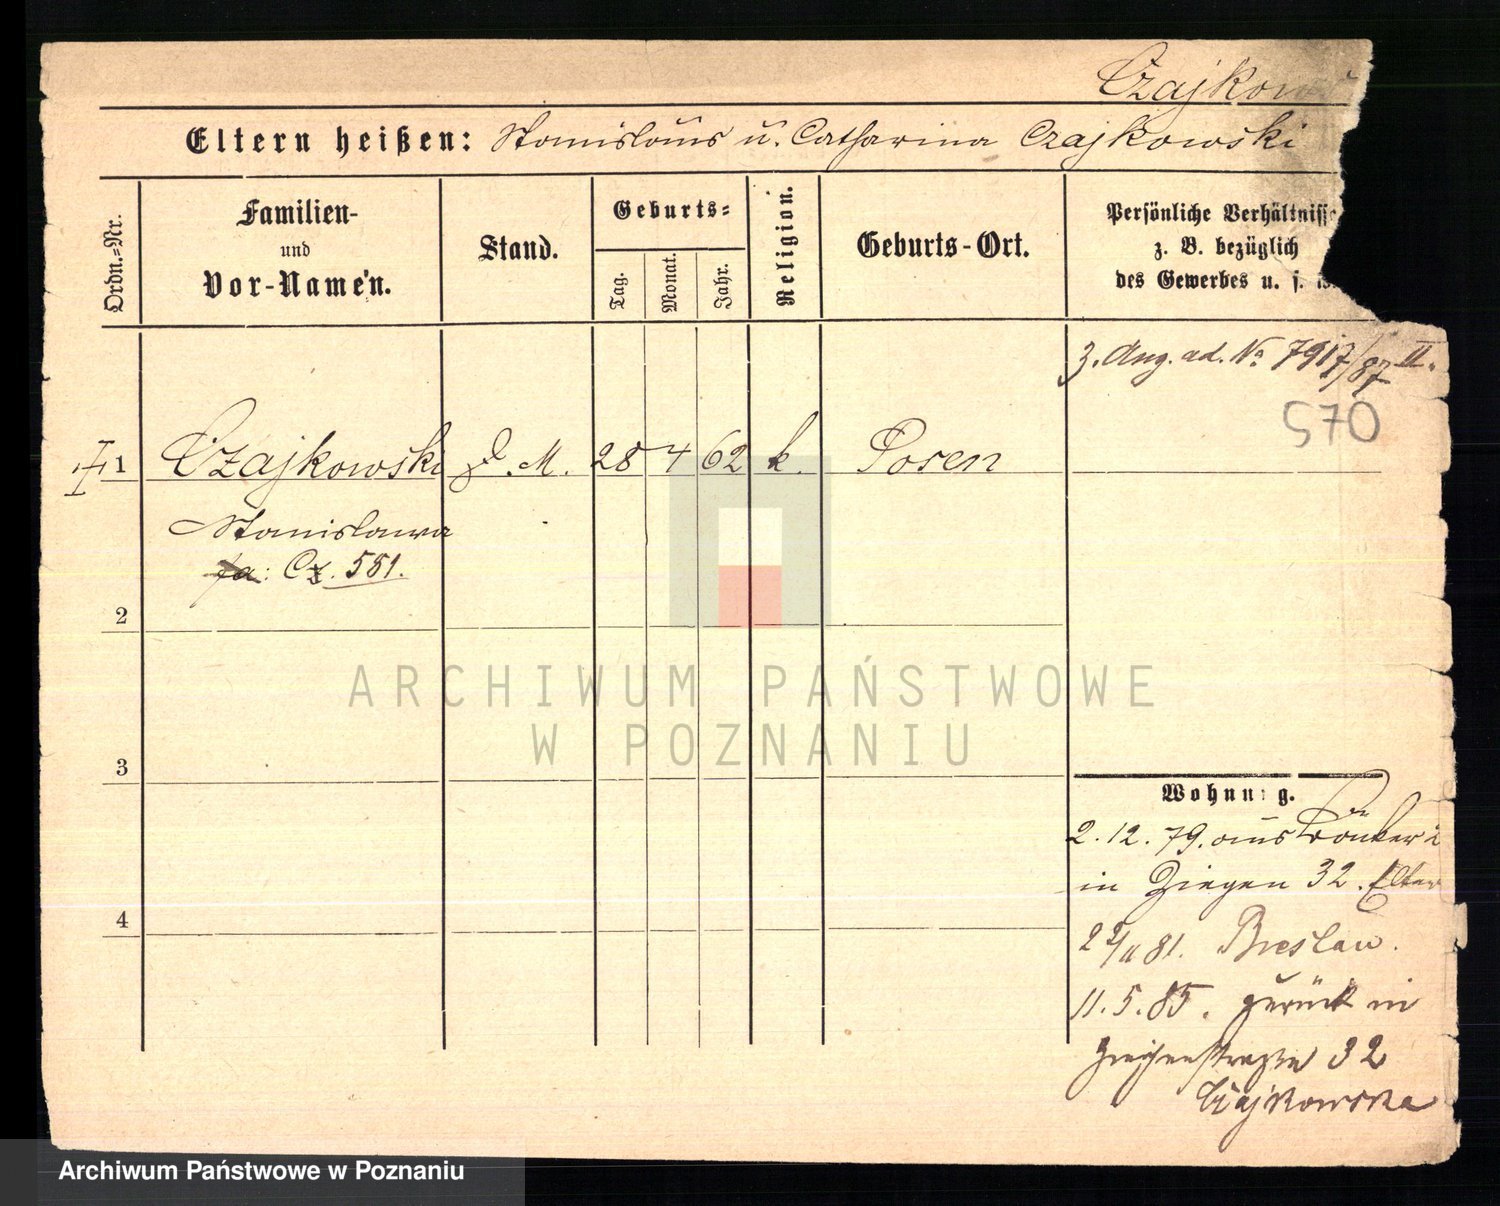 Eltern heißen: Stanislaus u. Catharina Czajkowski
Ordn.-Nr.
Familien-
und
Vor-Namen.
Stand.
Geburts-
Tag.
Monat.
Jahr.
Religion.
Geburts-Ort.
Persönliche Verhältnisse
z. B. bezüglich
des Gewerbes u. s.
3. Ang. ad. No 7917/87 II.
570
1 Czajkowski d. M. 28 4 62 k. Posen
Stanislawa
fa: Cz. 551.
2
3
4
Wohnung.
2.12.79. aus
in Ziegen 32. Elter
81. Breslau.
11.5.85. zurück in
32
Czajkowska
ARCHIWUM PAŃSTWOWE
W POZNANIU
Archiwum Państwowe w Poznaniu